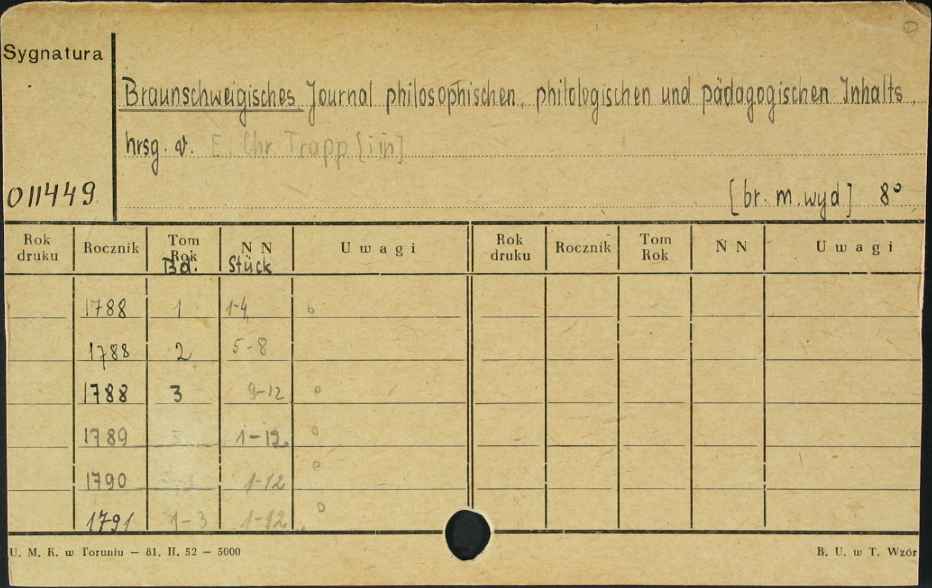 Sygnatura
Braunschweigisches Journal philosophischen, philologischen und pädagogischen Inhalts,
hrsg. v. E. Chr. Trapp [i in]
011449
[br. m. wyd] 8°
Rok druku Rocznik Tom Rok N N U w a g i Rok druku Rocznik Tom Rok N N U w a g i
Bd. Stück
1788 1 1-4
1788 2 5-8
1788 3 9-12
1789 1-12
1790 1-12
1791 1-3 1-12
U. M. K. w Toruniu — 81. II. 52 — 5000
B. U. w T. Wzór